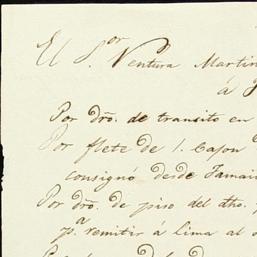 El S.or Ventura Martin
á
Por dro. de transito en
Por flete de 1. Cajon
consignó desde Jamai
Por dro. de piso del dho.
pa. remitir a lima al